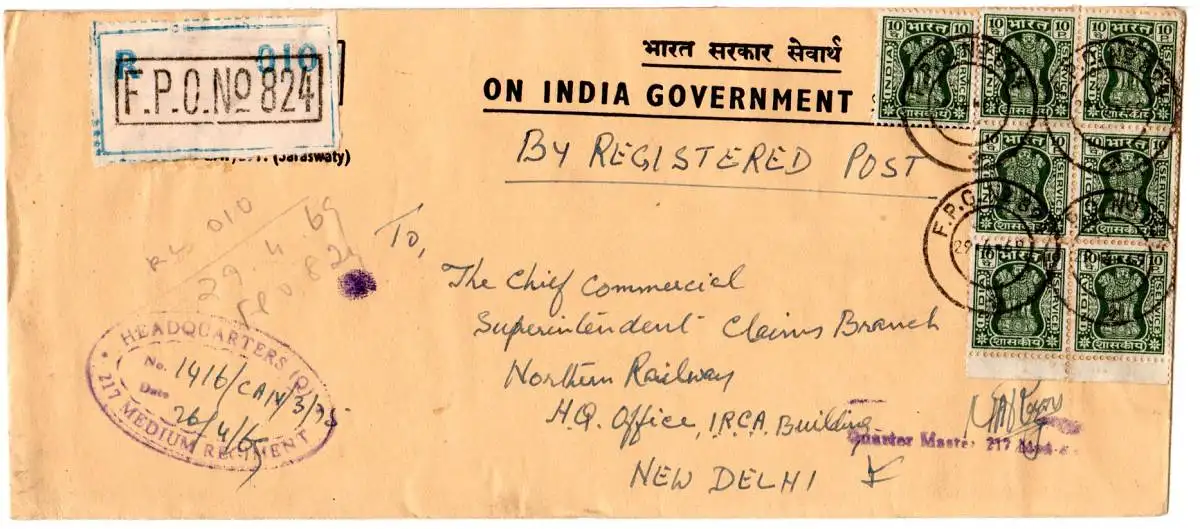 R 010
F.P.O. No 824
(Saraswaty)
भारत सरकार सेवार्थ
ON INDIA GOVERNMENT
BY REGISTERED POST
010
29.4.69
FPO 824
To,
The Chief Commercial
Superintendent Claims Branch
Northern Railway
H.Q. Office, I.R.C.A. Building
NEW DELHI
HEADQUARTERS (Q)
No. 1416/
Date 26/4/
217 MEDIUM REGIMENT
Quarter Master 217 Med
10 भारत 10
INDIA SERVICE
शासकीय
10 भारत 10
INDIA SERVICE
शासकीय
10 भारत 10
INDIA SERVICE
शासकीय
भारत
INDIA SERVICE
शासकीय
SERVICE
शासकीय
10 भारत 10
INDIA SERVICE
शासकीय
10 भारत 10
INDIA SERVICE
शासकीय
F.P.O.